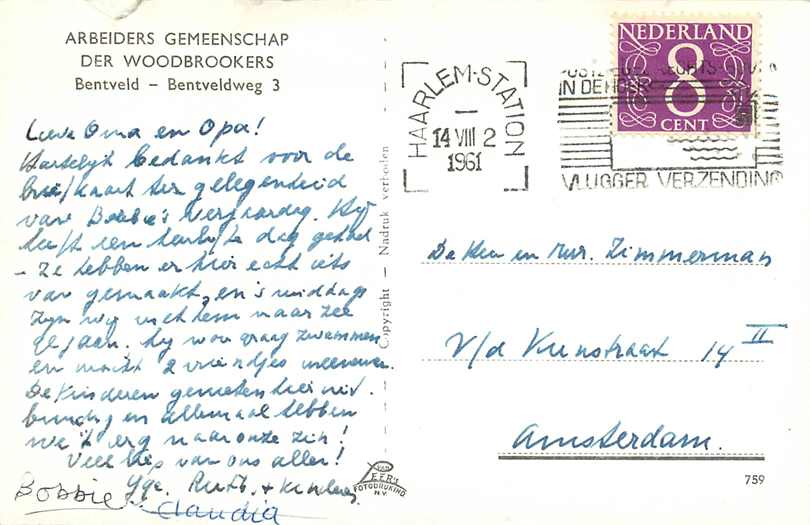 ARBEIDERS GEMEENSCHAP
DER WOODBROOKERS
Bentveld – Bentveldweg 3
Lieve Oma en Opa!
Hartelijk bedankt voor de
briefkaart ter gelegenheid
van Bobbie's verjaardag. Hij
heeft een heerlijke dag gehad
- Ze hebben er hier echt iets
van gemaakt, en 's middags
zijn wij met hem naar zee
gegaan. Hij wou graag zwemmen
en mocht 2 vriendjes meenemen.
De kinderen genieten hier uit-
bundig en allemaal hebben
we 't erg naar onze zin!
Veel liefs van ons allen!
Ruth + kinderen
Bobbie
Claudia
Copyright – Nadruk verboden
VAN LEER'S
FOTODRUKIND
N.V.
HAARLEM-STATION
14 VIII 2
1961
IN DE
VLUGGER VERZENDING
NEDERLAND
8
CENT
De Heer en Mvr. Zimmerman
v/d Kunstraat 14 II
Amsterdam.
759